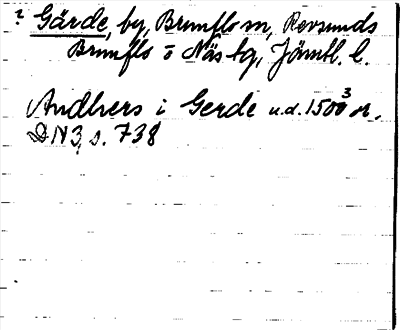 ? Gärde, by, Brunflo sn, Revsunds
Brunflo o Näs tg, Jämtl. l.
Andhers i Gerde u.d. 1500 3 or.
DN 3, s. 738